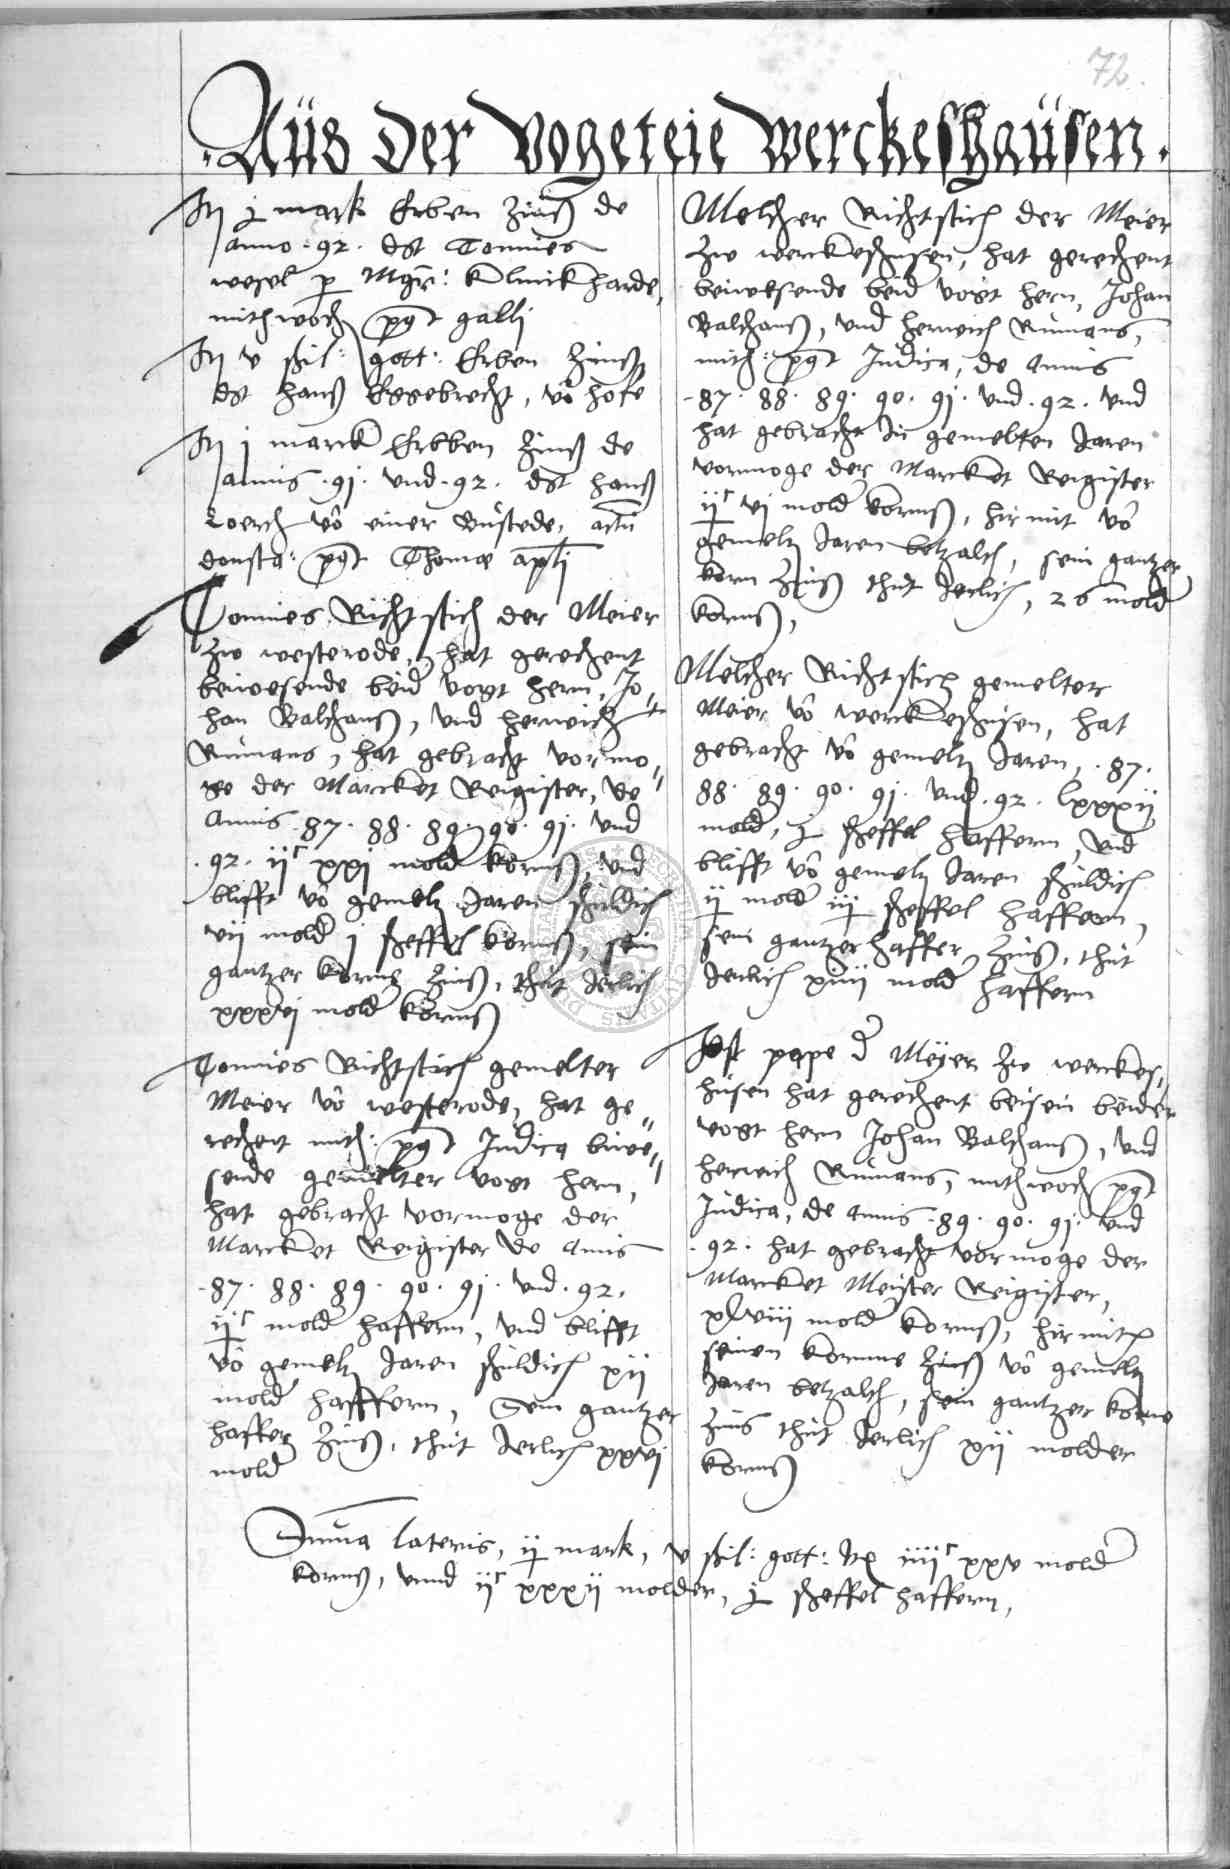 72.
Aüs der Vogeteie Werckeshaüsen.
It j mark Erben Zinß de
anno .92. dt Tonnies
wesel p Mgr: Klinckharde,
mithwoch pqt galli
It v ßil: gott: Erben Zinß
dt Hanß Essebrecht, vō hofe
It j marck Erbben Zinß de
annis .91. und .92. dt Hanß
Loerch vō einer Bustede, actū
donsta: pqt Thomæ apli
Tonnies Richtstich der Meier
Zw westerode, hat gerechent
beiwesende beid vogt hern, Jo-
han Balthans, und herwich
Rumans, hat gebracht vormo-
ge der Marcket Reigister, de
Annis .87. 88. 89. 90. 91. und
.92. ijc xxj mold Korns, und
blifft vō gemelt Jaren schuldich
vij mold j scheffel Korns, sein
gantzer Korns Zinß, thut Jerlich
xxxvj mold Korns
Tonnies Richtstich gemelter
Meier vō westerode, hat ge-
rechent mith: pqt Judica biwe-
sende gemelter vogt hern,
hat gebracht vormoge der
Marcket Reigister de Annis
.87. 88. 89. 90. 91. und .92.
ijc mold haffern, und blifft
vō gemelt Jaren schuldich xij
mold haffern, Sein gantzer
haffer Zinß, thut Jerlich xxvj
mold
Melcher Richtstich der Meier
Zw werckeshusen, hat gerechent
beiwesende beid vogt hern, Johan
Balthans, und herwich Rumans,
mith: pqt Judica, de Annis
.87. 88. 89. 90. 91. und .92. und
hat gebracht In gemelten Jaren
vormoge der Marcket Reigister
ijc vj mold Korns, hir mit vō
gemelt Jaren betzalth, sein gantzer
Korn Zinß thut Jerlich, 26 mold
Korns,
Melcher Richtstich gemelter
Meier vō werckeshusen, hat
gebracht vō gemelt Jaren, .87.
88. 89. 90. 91. und .92. lxxxij
mold, j scheffel haffern, und
blifft vō gemelt Jaren schuldich
ij mold iij scheffel haffern,
sein gantzer haffer Zinß, thut
Jerlich xiiij mold haffern
Jost pape d Meyer Zw werckes-
husen hat gerechent beisein beider
vogt hern Johan Balthans, und
herwich Rumans, mithwoch pqt
Judica, de Annis .89. 90. 91. und
.92. hat gebracht vormoge der
Marcket Meister Reigister,
xlviij mold Korns, hir mith
seinen Kornne Zinß vō gemelt
Jaren betzalth, sein gantzer Korne
Zins thut Jerlich xij molder
Korns
Suma lateris, ij mark, v ßil: gott: It iiijc xxv mold
Korns, unnd ijc xxxij molder, j scheffel haffern,